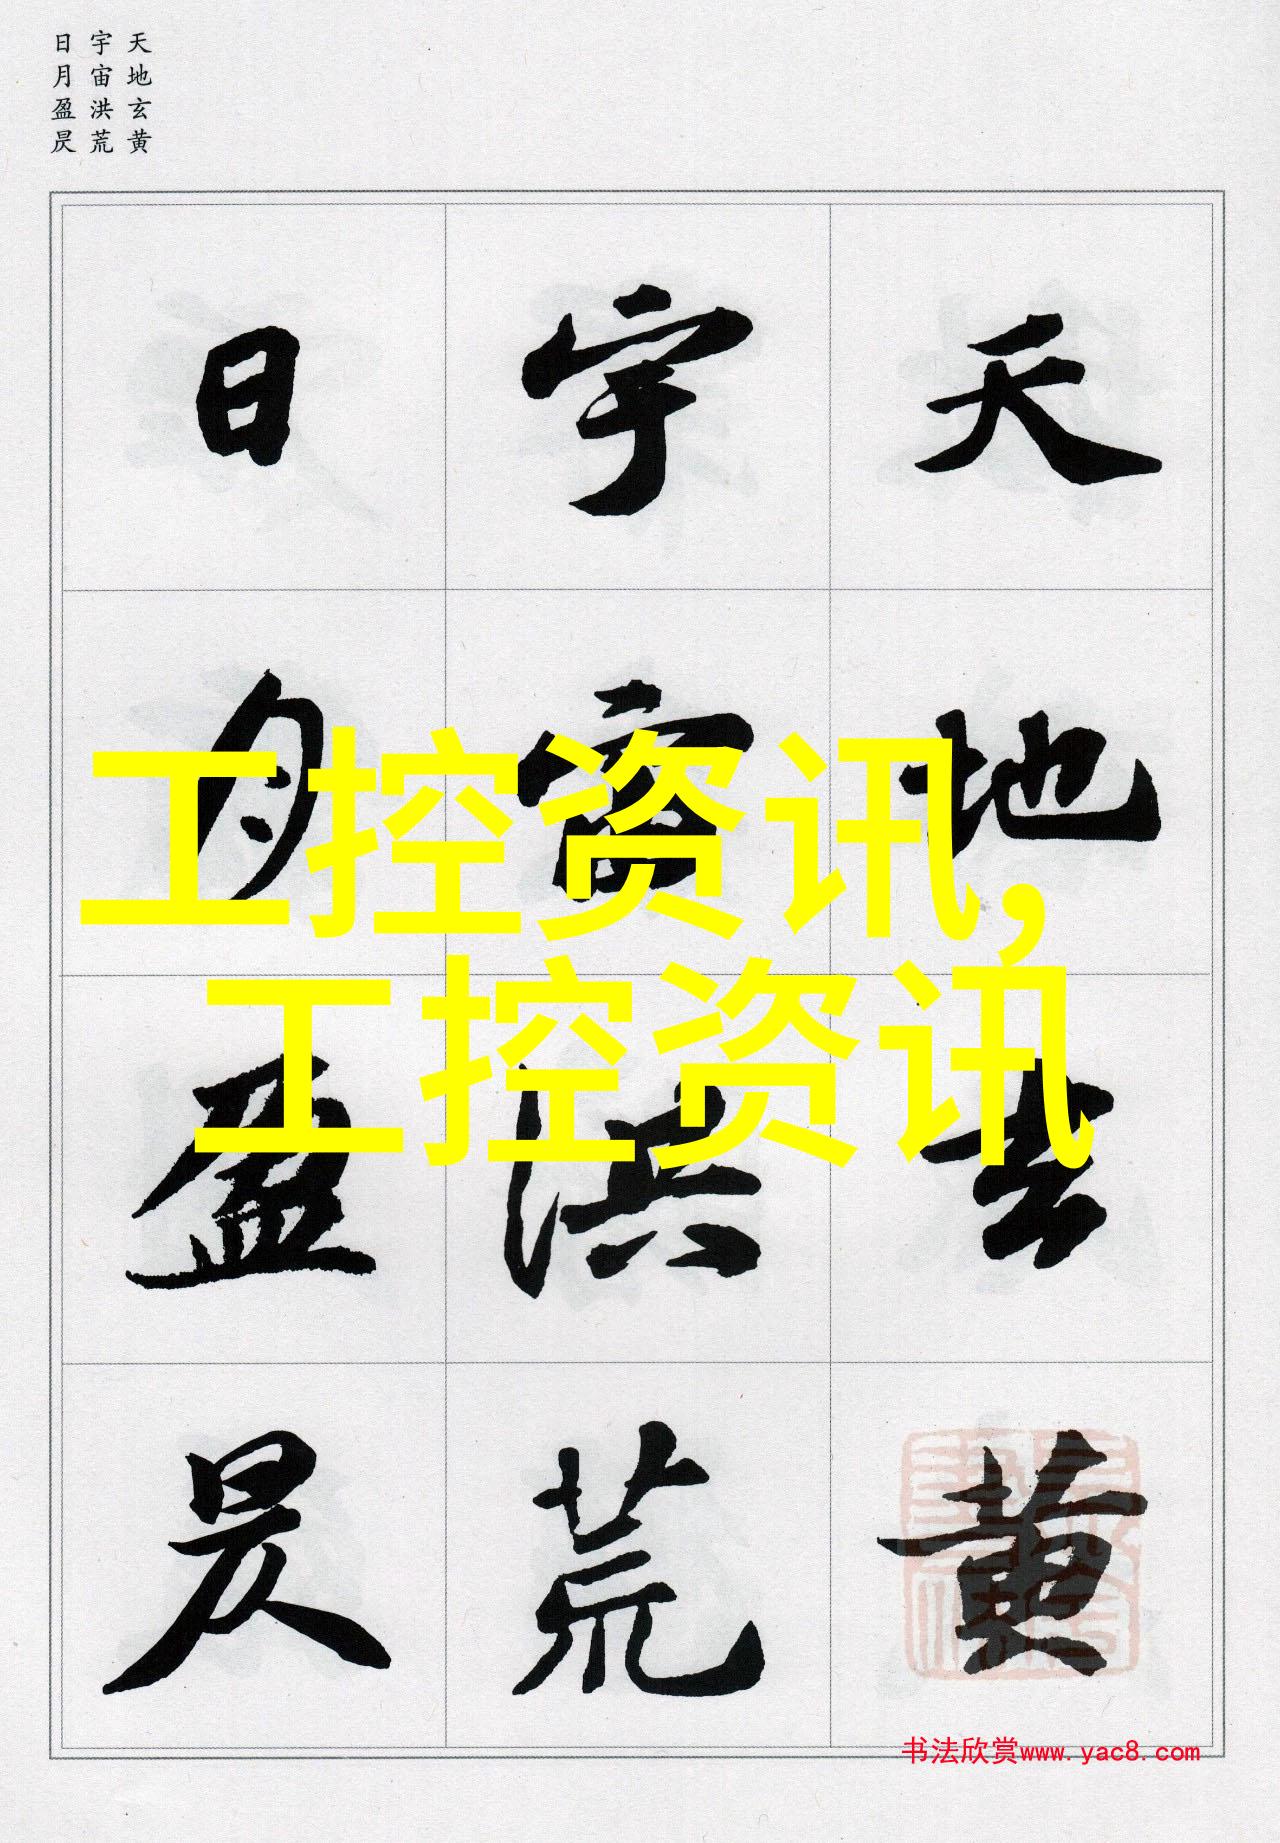 天地玄黄
宇宙洪荒
日月盈昃
天地玄黄
宇宙洪荒
日月盈昃
工控资讯,
工控资讯
书法欣赏www.yac8.com